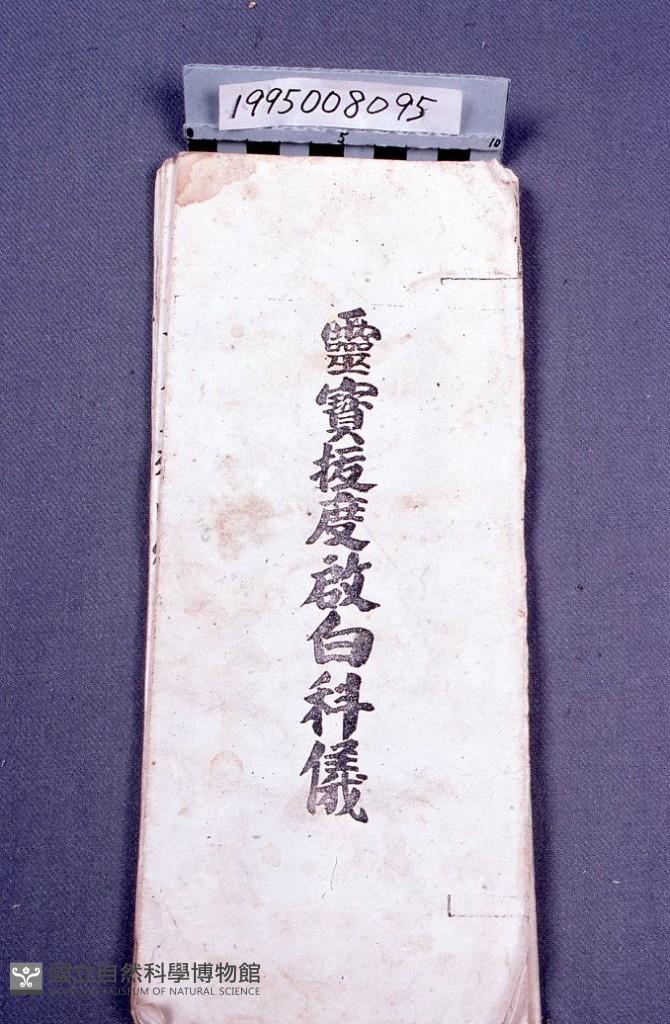 1995008095
5
10
靈寶拔度啟白科儀
國立自然科學博物館
NATIONAL MUSEUM OF NATURAL SCIENCE